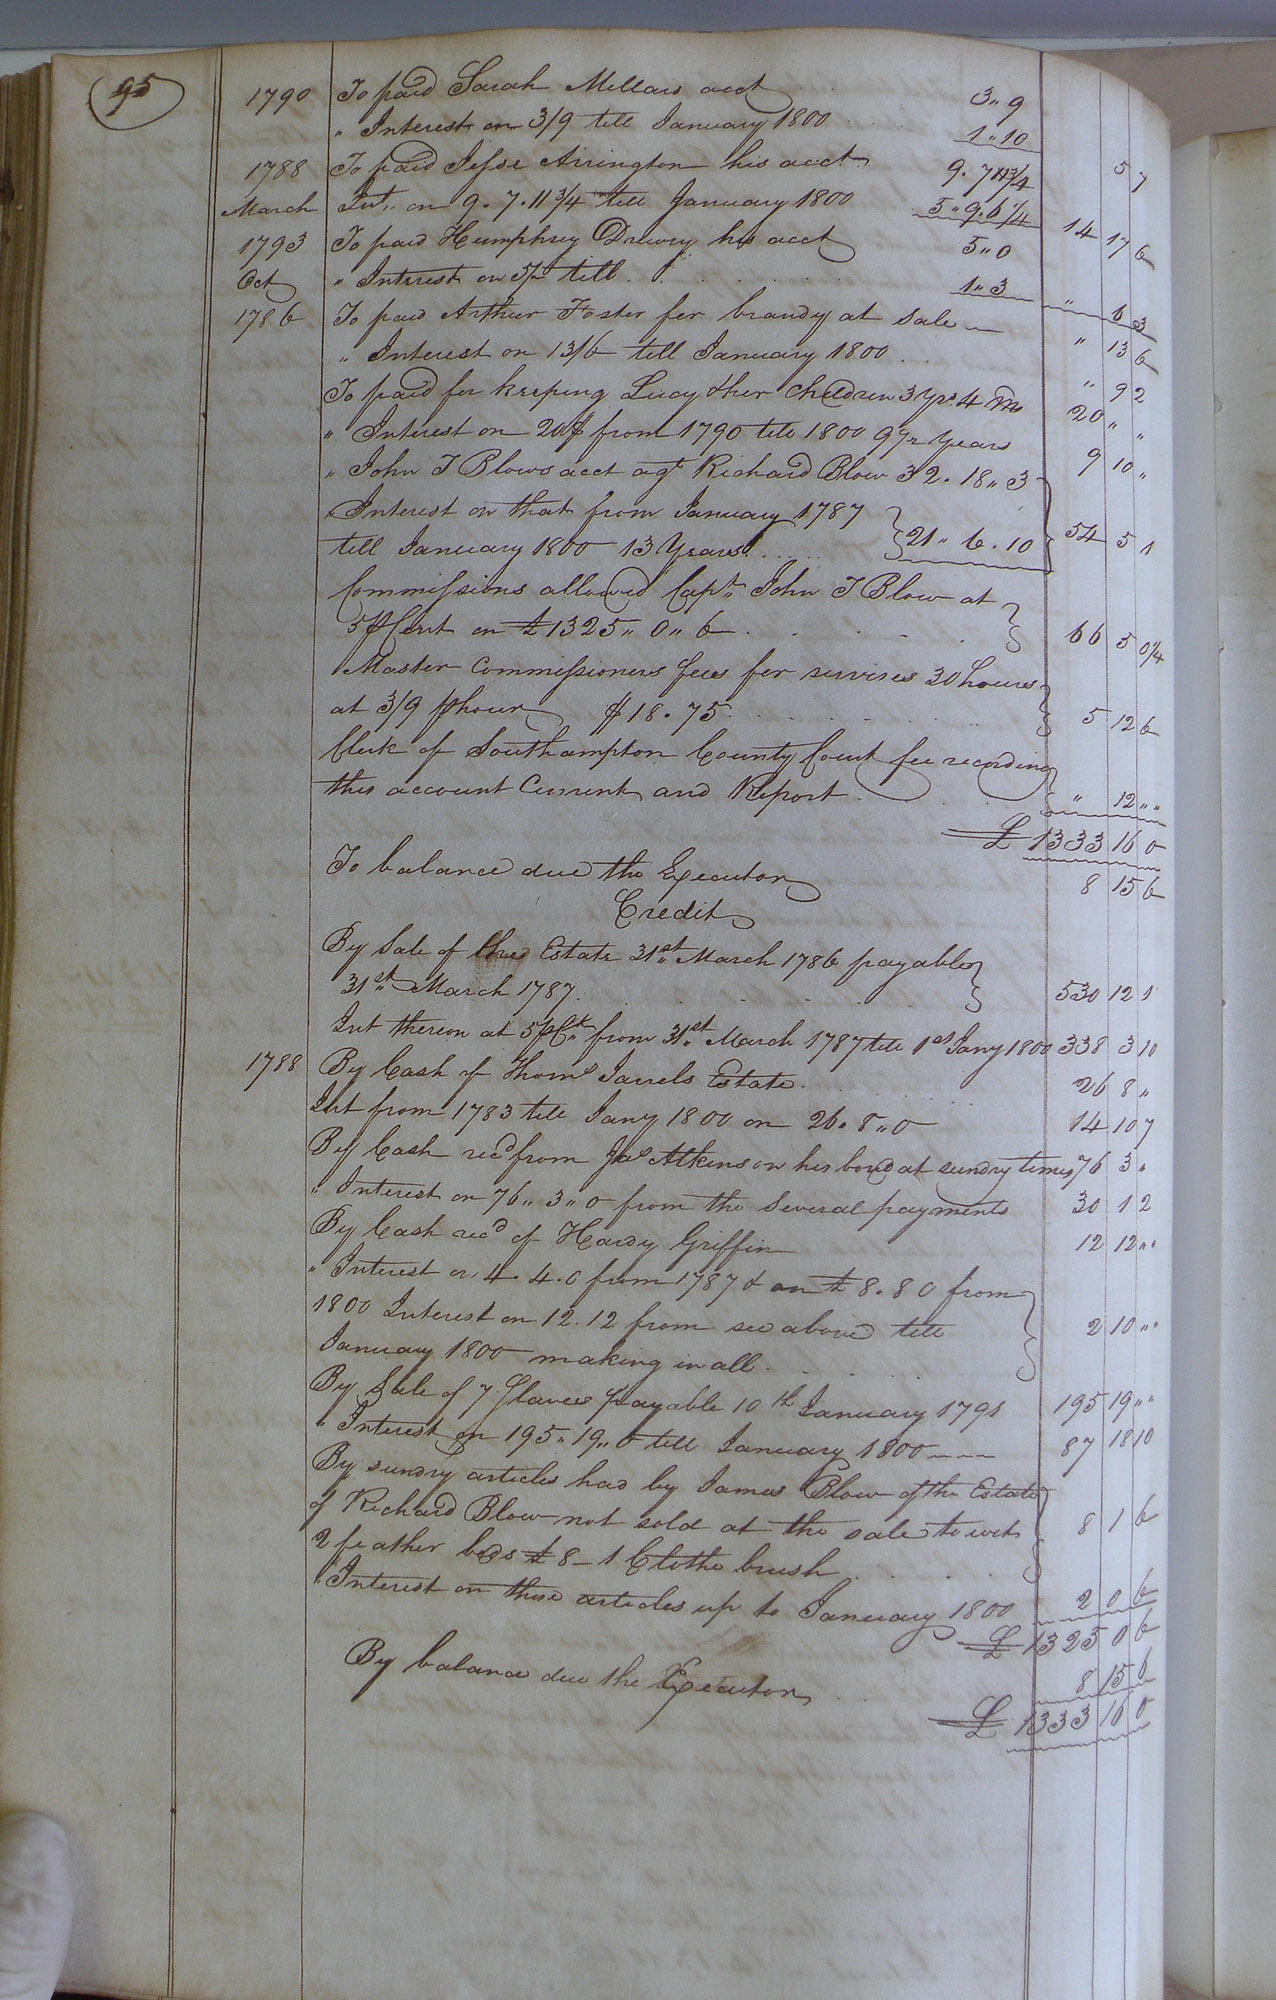 95
1790 To paid Sarah Millars acct 3 " 9
" Interest on 3/9 till January 1800 1 " 10 5 7
1788 To paid Jesse Arrington his acct 9 . 7 11 3/4
March Int " on 9 . 7 . 11 3/4 till January 1800 5 " 9 . 6 1/4 14 17 6
1793 To paid Humphrey Drewry his acct 5 " 0
Oct " Interest on 5/ till 1 " 3 " 6 3
1786 To paid Arthur Foster for brandy at sale " 13 6
" Interest on 13/6 till January 1800 " 9 2
To paid for keeping Lucy & her children 3 Yrs 4 Ms 20 " "
" Interest on 20£ from 1790 till 1800 9 1/2 Years 9 10 "
" John T Blows acct agt Richard Blow 32 . 18 " 3
" Interest on that from January 1787
till January 1800 13 Years 21 " 6 . 10 54 5 1
Commissions allowed Capt " John T Blow at
5 ⅌ Cent on £1325 " 0 " 6 66 5 0 1/4
Master Commissioners fees for servises 30 hours
at 3/9 ⅌ hour $18 . 75 5 12 6
Clerk of Southampton County Court fee recording
this account Current and Report " 12 " "
£ 1333 16 0
To balance due the Executor 8 15 6
Credit
By Sale of Estate 31st March 1786 payable
31st March 1787 530 12 1
Int thereon at 5 ⅌ Ct from 31st March 1787 till 1st Jany 1800 338 3 10
1788 By Cash of Thoms Jarrels Estate 26 8 "
Int from 1783 till Jany 1800 on 26 . 8 " 0 14 10 7
By Cash recd from Jas Atkinson his bond at sundry times 76 3 "
" Interest on 76 " 3 " 0 from the several payments 30 1 2
By Cash recd of Hardy Griffin 12 12 " "
" Interest on 4 . 4 . 0 from 1787 & on £ 8 . 8 0 from
1800 Interest on 12 . 12 from see above till
January 1800 making in all 2 10 " "
By Sale of 7 Slaves payable 10th January 1791 195 19 " "
" Interest on 195 " 19 " 0 till January 1800 87 18 10
By sundry articles had by James Blow of the Estate
of Richard Blow not sold at the sale to wit
2 feather beds £ 8 – 1 Clothe brush 8 1 6
" Interest on those articles up to January 1800 2 0 6
£ 1325 0 6
By balance due the Executor 8 15 6
£ 1333 16 0